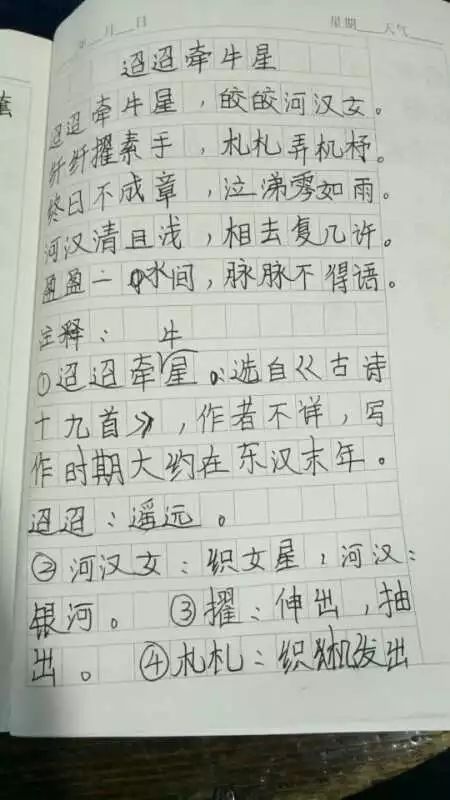 年 月 日 星期 天气
迢迢牵牛星
迢迢牵牛星，皎皎河汉女。
纤纤擢素手，札札弄机杼。
终日不成章，泣涕零如雨。
河汉清且浅，相去复几许。
盈盈一水间，脉脉不得语。
注释：
①迢迢牵牛星。：选自《古诗
十九首》，作者不详，写
作时期大约在东汉末年。
迢迢：遥远。
②河汉女：织女星；河汉：
银河。 ③擢：伸出，抽
出。 ④札札：织机发出